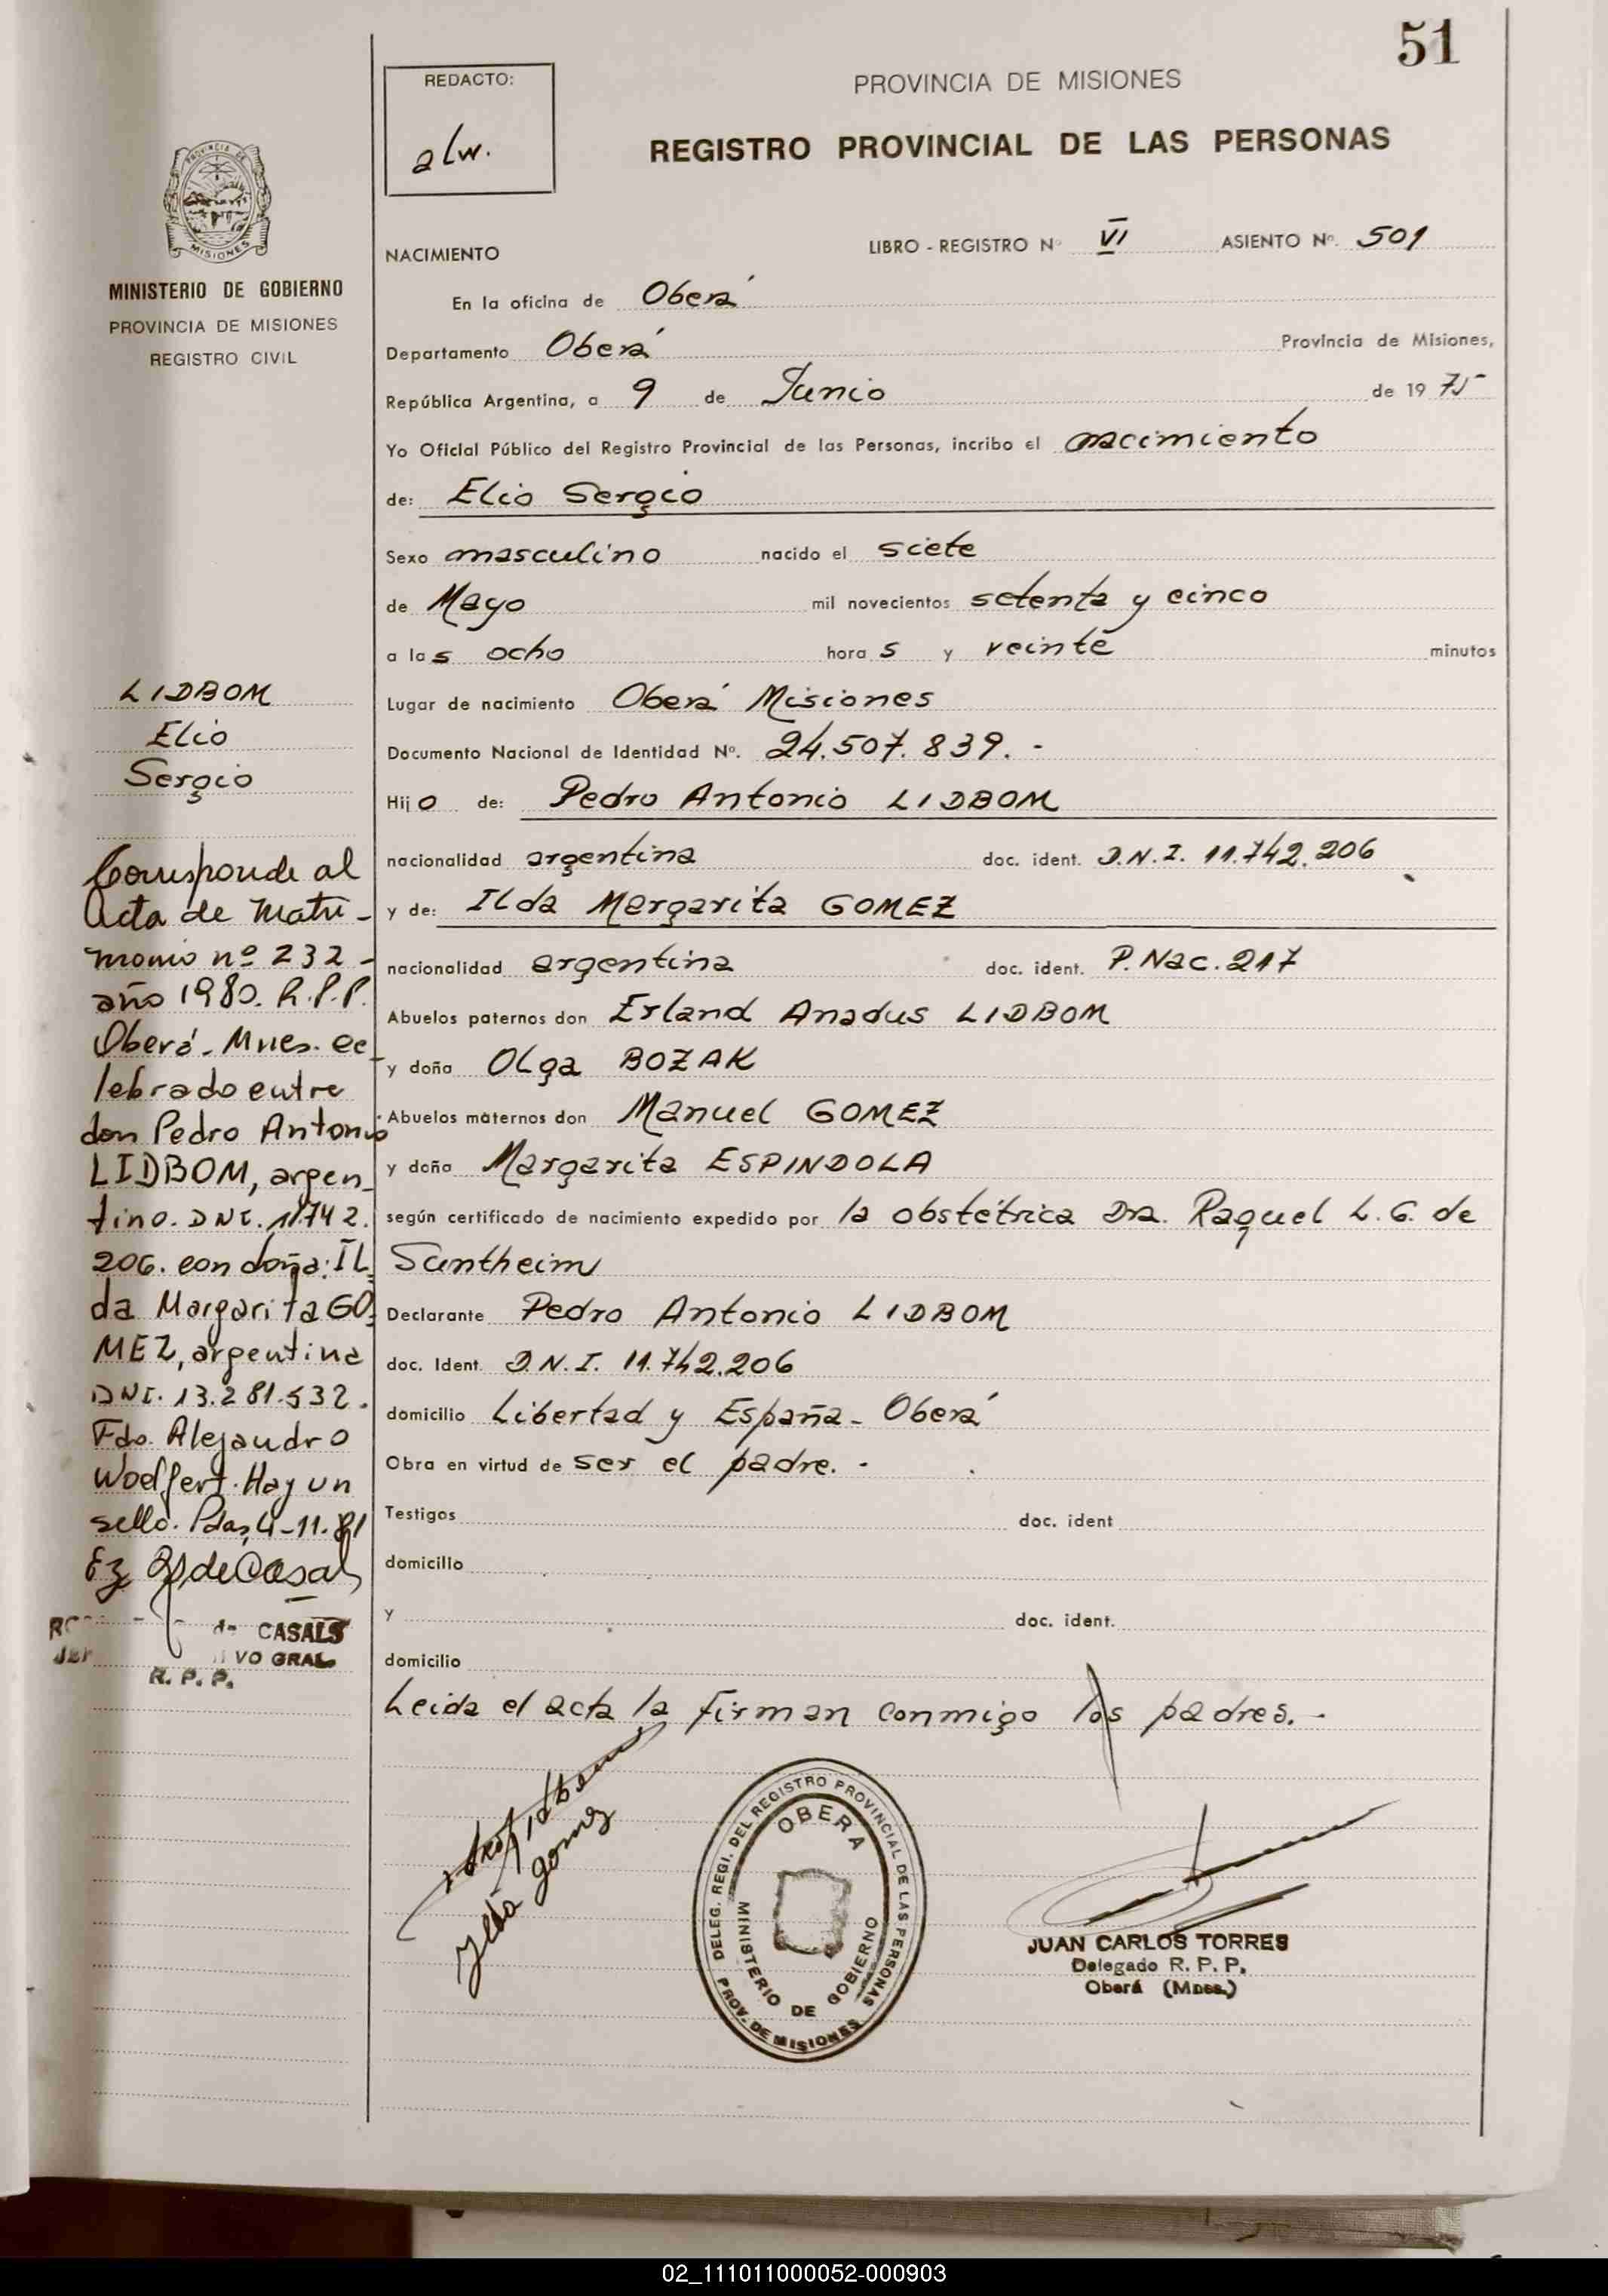 51
REDACTO:
alw.
PROVINCIA DE MISIONES
REGISTRO PROVINCIAL DE LAS PERSONAS
PROVINCIA DE
MISIONES
MINISTERIO DE GOBIERNO
PROVINCIA DE MISIONES
REGISTRO CIVIL
NACIMIENTO LIBRO - REGISTRO Nº VI ASIENTO Nº. 501
En la oficina de Oberá
Departamento Oberá Provincia de Misiones,
República Argentina, a 9 de Junio de 1975
Yo Oficial Público del Registro Provincial de las Personas, incribo el nacimiento
de: Elio Sergio
Sexo masculino nacido el siete
de Mayo mil novecientos setenta y cinco
a las ocho horas y veinte minutos
Lugar de nacimiento Oberá Misiones
Documento Nacional de Identidad Nº. 24.507.839.-
Hijo de: Pedro Antonio LIDBOM
nacionalidad argentina doc. ident. D.N.I. 11.742.206
y de: Ilda Mergarita GOMEZ
nacionalidad argentina doc. ident. P.Nac.217
Abuelos paternos don Erland Anadus LIDBOM
y doña Olga BOZAK
Abuelos maternos don Manuel GOMEZ
y doña Margarita ESPINDOLA
según certificado de nacimiento expedido por la obstétrica Dra. Raquel L. G. de
Suntheim
Declarante Pedro Antonio LIDBOM
doc. Ident. D.N.I. 11.742.206
domicilio Libertad y España - Oberá
Obra en virtud de ser el padre.-
Testigos doc. ident
domicilio
y doc. ident.
domicilio
Leida el acta la firman conmigo los padres.-
LIDBOM
Elio
Sergio
Corresponde al
Acta de Matri-
monio nº 232-
año 1980. R.P.P.
Oberá-Mnes. ce-
lebrado entre
don Pedro Antonio
LIDBOM, argen-
tino. DNI. 11742.
206. con doña: IL-
da Margarita GO-
MEZ, argentina
DNI. 13.281.532.
Fdo. Alejandro
Woelfert. Hay un
sello. Pdas, 4-11-81
de Casals
de CASALS
VO GRAL
R. P. P.
Ilda Gomez
DELEG. REGI. DEL REGISTRO PROVINCIAL DE LAS PERSONAS
PROV. DE MISIONES
OBERA
MINISTERIO DE GOBIERNO
JUAN CARLOS TORRES
Delegado R. P. P.
Oberá (Mnes.)
02_111011000052-000903